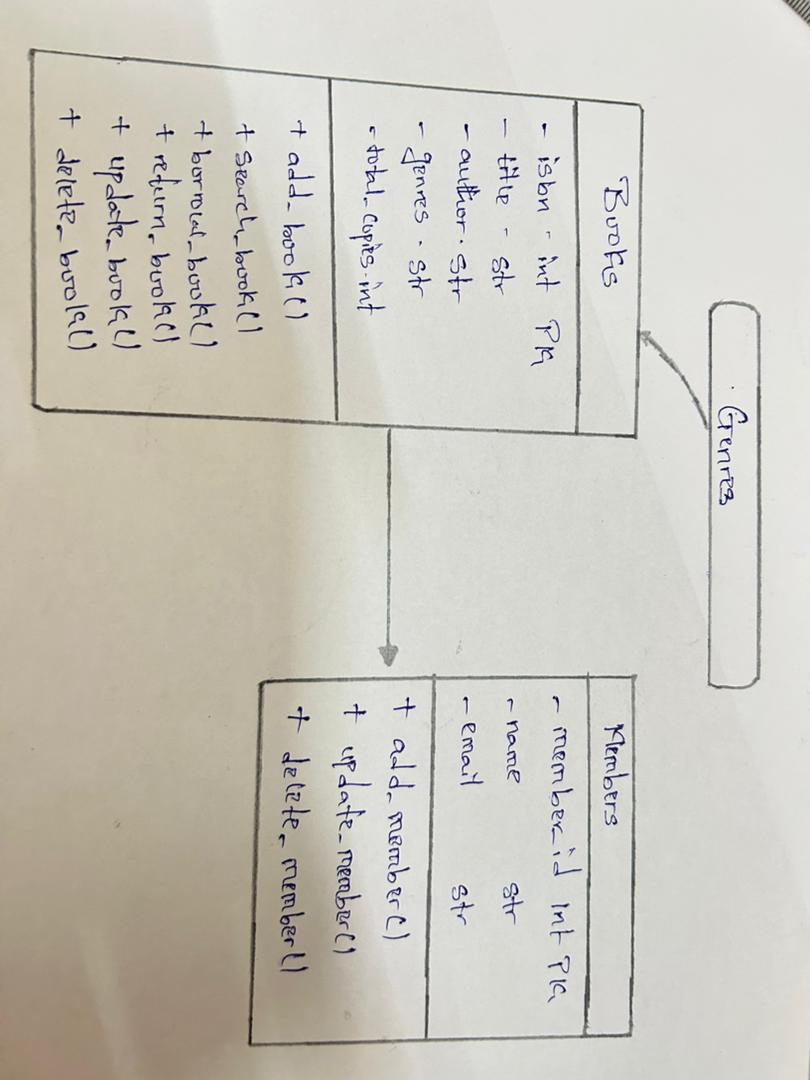 Genres
Books
- isbn - int PK
- title - str
- author - str
- genres - str
- total_copies - int
+ add_book()
+ search_book()
+ borrow_book()
+ return_book()
+ update_book()
+ delete_book()
Members
- member_id int PK
- name str
- email str
+ add_member()
+ update_member()
+ delete_member()